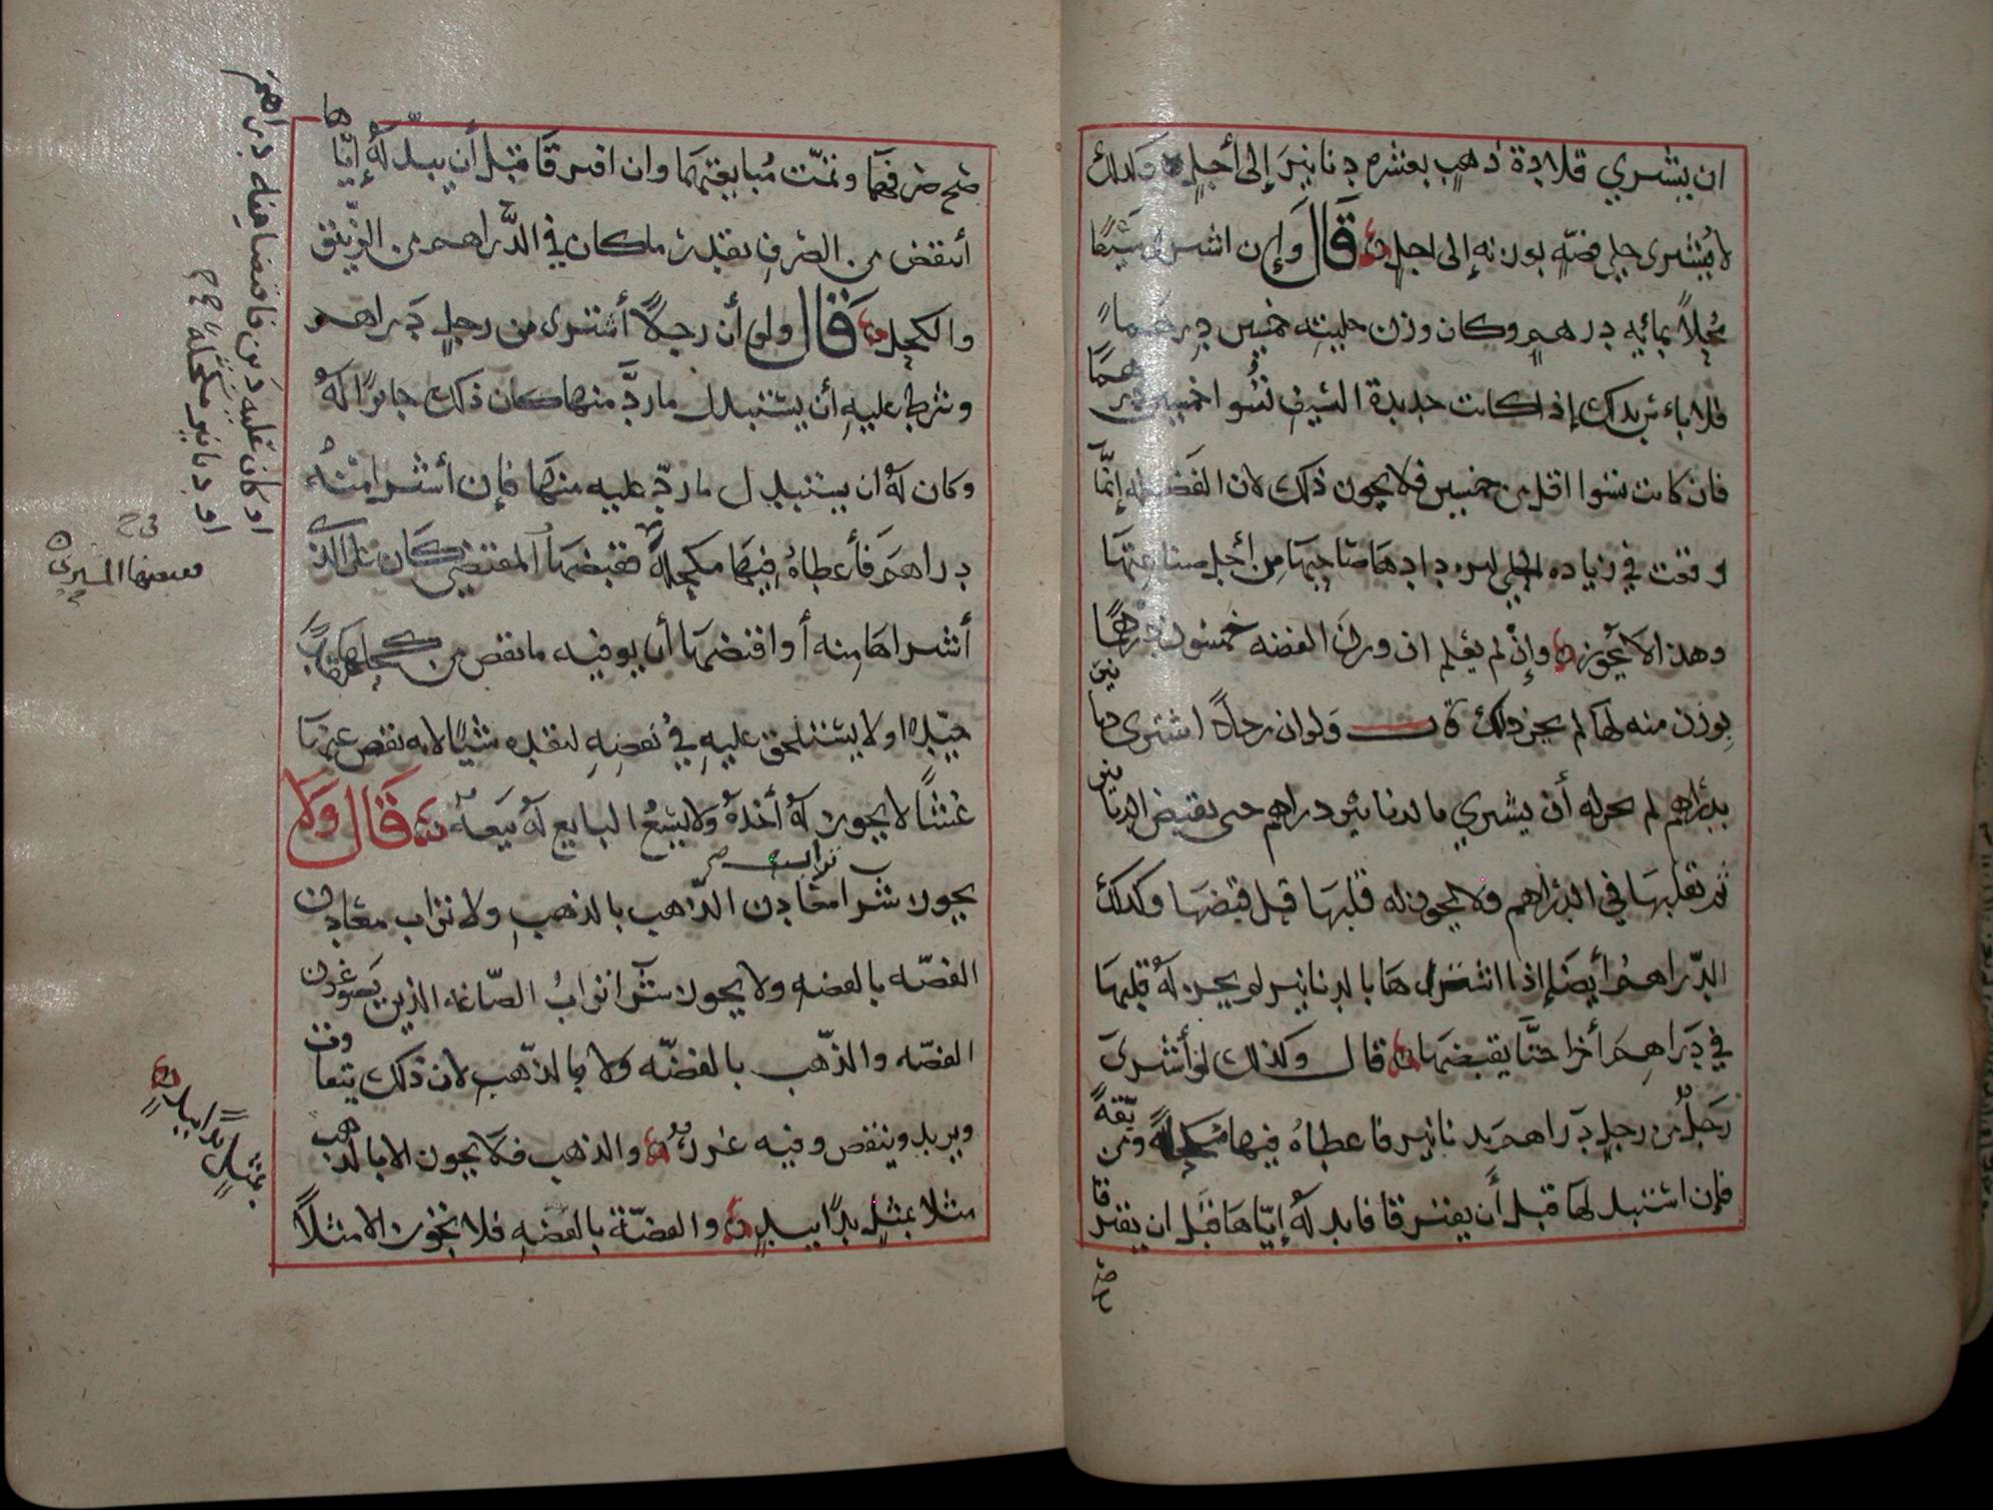 ان يشتري قلادة ذهب بعشره دنانير إلى أجل وكذلك
لا يشترى حلي فضّه بوزنه إلى اجل قَالَ وإن اشترى شيئًا
محلاً بمائه درهم وكان وزن حليته خمسين درهما
فلا باء س بذلك إذا كانت حديدة السيف تسوا خمسين درهمًا
فان كانت تسوا اقل من خمسين فلا يجوز ذلك لان الفضه إنّما
وقعت في زياده الحلي ازدادها صاحبها من أجل صناعتها
وهذا لا يجوز وإن لم يعلم ان وزن الفضه خمسون درهمًا
بوزن منه لها لم يجز ذلك قال ولو ان رجلا اشترى دنانير
بدراهم لم يجز له أن يشتري بالدنانير دراهم حتى يقبض الدنانير
ثم يقلبها في الدراهم ولا يجوز له قلبها قبل قبضها وكذلك
الدّراهم أيضا إذا اشتراها بالدنانير لم يجز لهُ قلبها
في دَراهم أخرا حتَّا يقبضها قال وكذلك لو أشترى
رَجلٌ من رجلٍ دَراهم بدنانير فاعطاهُ فيها مكحلةً ومزيّقةً
فإن استبدلها قبل أن يفترقا فابدلهُ إيّاها قبل ان يفترقا
صح
صح صرفهما وتمّت مُبايعتهما وان افترقا قبل أن يبدّلهُ إيّاها
أنتقض من الصرف بقدر ما كان في الدَّراهم من الزيّيق
والكحل قَالَ ولو أن رجلاً أشترى من رجلٍ دَراهم
وشرط عليهِ أن يستبدل ما ردَّ منها كان ذلك جايزًا لهُ
وكان لهُ ان يستبدل ما ردّ عليه منها فإن أشترا منهُ
دراهمَ فأعطاهُ فيها مكحلةً فقبضها المقتضي كان على الذي
أشتراها منه أو اقتضها أن يوفيه ما نقص من كحلها
جيّده او لا يستلحق عليهِ في نقصِهِ لنقده شيًا لانه نقص
غشًا لا يجوز لهُ أخذهُ ولا يسَعُ البايع لهُ بيعَهُ قَالَ وَلا
يجوز شرا معادن الذّهب بالذهبِ ولا تراب معادن
تراب
الفضّه بالفضهِ ولا يجوز شرا ترابُ الصّاغه الذين يَصوغون
الفضّه والذّهب بالفضّه ولا بالذّهبِ لان ذلك يتفاوت
ويزيد وينقص وفيه غرر والذهب فلا يجوز الا بالذهب
مثلا بمثلٍ يدًا بيدٍ والفضّة بالفضهِ فلا تجوز الا مثلاً
او كان عليه دَين فاقتضا منه دراهم
او دنانير مكحلةً
بمثلٍ يدًا بيدٍ